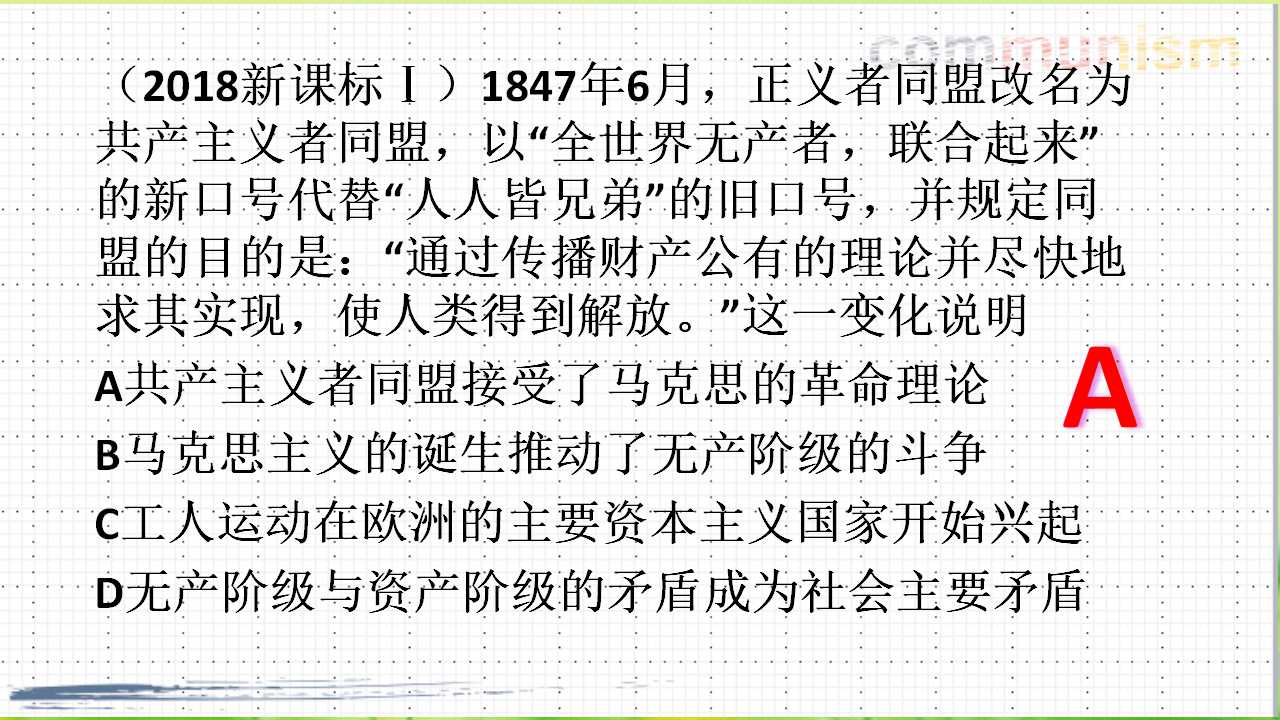 communism
（2018新课标Ⅰ）1847年6月，正义者同盟改名为
共产主义者同盟，以“全世界无产者，联合起来”
的新口号代替“人人皆兄弟”的旧口号，并规定同
盟的目的是：“通过传播财产公有的理论并尽快地
求其实现，使人类得到解放。”这一变化说明
A共产主义者同盟接受了马克思的革命理论
A
B马克思主义的诞生推动了无产阶级的斗争
C工人运动在欧洲的主要资本主义国家开始兴起
D无产阶级与资产阶级的矛盾成为社会主要矛盾